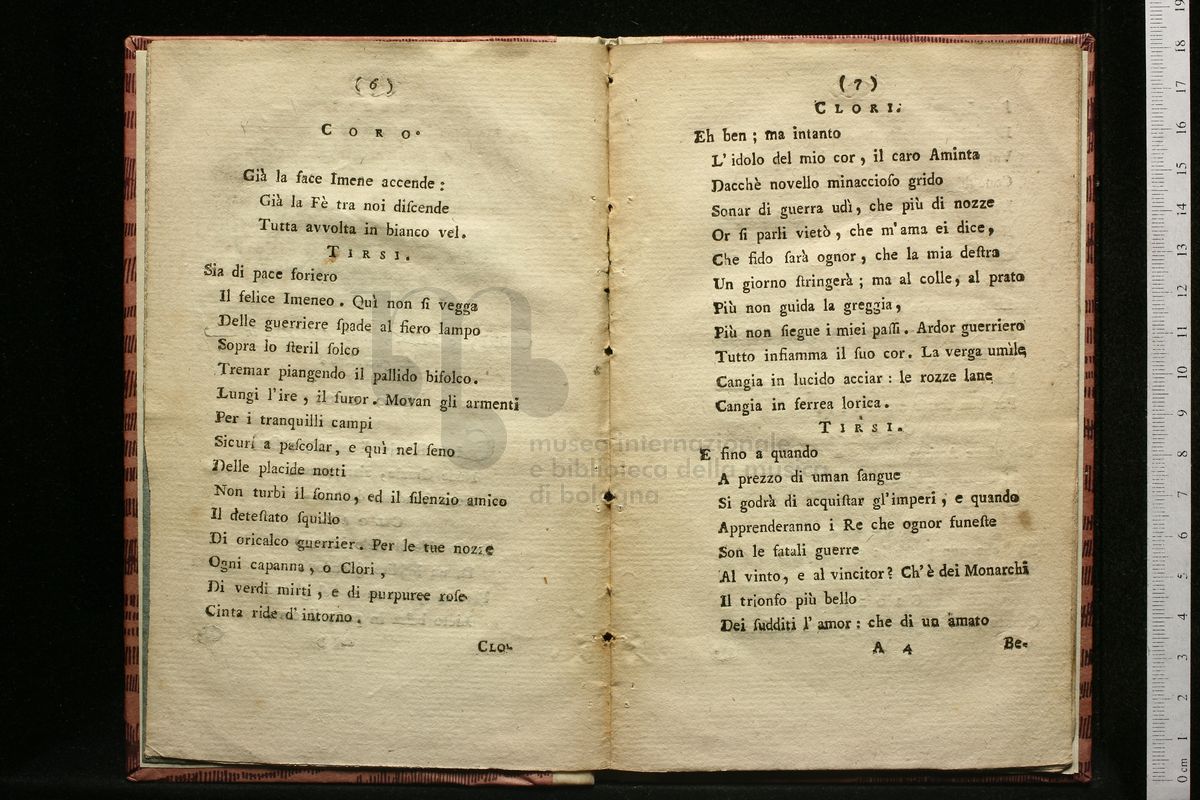 (6)
CORO.
Già la face Imene accende:
Già la Fè tra noi diſcende
Tutta avvolta in bianco vel.
TIRSI.
Sia di pace foriero
Il felice Imeneo. Quì non ſi vegga
Delle guerriere ſpade al fiero lampo
Sopra lo ſteril ſolco
Tremar piangendo il pallido bifolco.
Lungi l'ire, il furor. Movan gli armenti
Per i tranquilli campi
Sicuri a paſcolar, e quì nel ſeno
Delle placide notti
Non turbi il ſonno, ed il ſilenzio amico
Il deteſtato ſquillo
Di oricalco guerrier. Per le tue nozze
Ogni capanna, o Clori,
Di verdi mirti, e di purpuree roſe
Cinta ride d'intorno.
CLO-
(7)
CLORI.
Eh ben; ma intanto
L'idolo del mio cor, il caro Aminta
Dacchè novello minaccioſo grido
Sonar di guerra udì, che più di nozze
Or ſi parli vietò, che m'ama ei dice,
Che fido ſarà ognor, che la mia deſtra
Un giorno ſtringerà; ma al colle, al prato
Più non guida la greggia,
Più non ſiegue i miei paſſi. Ardor guerriero
Tutto infiamma il ſuo cor. La verga umìle
Cangia in lucido acciar: le rozze lane
Cangia in ferrea lorica.
TIRSI.
E fino a quando
A prezzo di uman ſangue
Si godrà di acquiſtar gl'imperi, e quando
Apprenderanno i Re che ognor funeſte
Son le fatali guerre
Al vinto, e al vincitor? Ch'è dei Monarchi
Il trionfo più bello
Dei ſudditi l'amor: che di un amato
A 4
Be-
museo internazionale
e biblioteca della musica
di bologna
0 cm 1 2 3 4 5 6 7 8 9 10 11 12 13 14 15 16 17 18 19